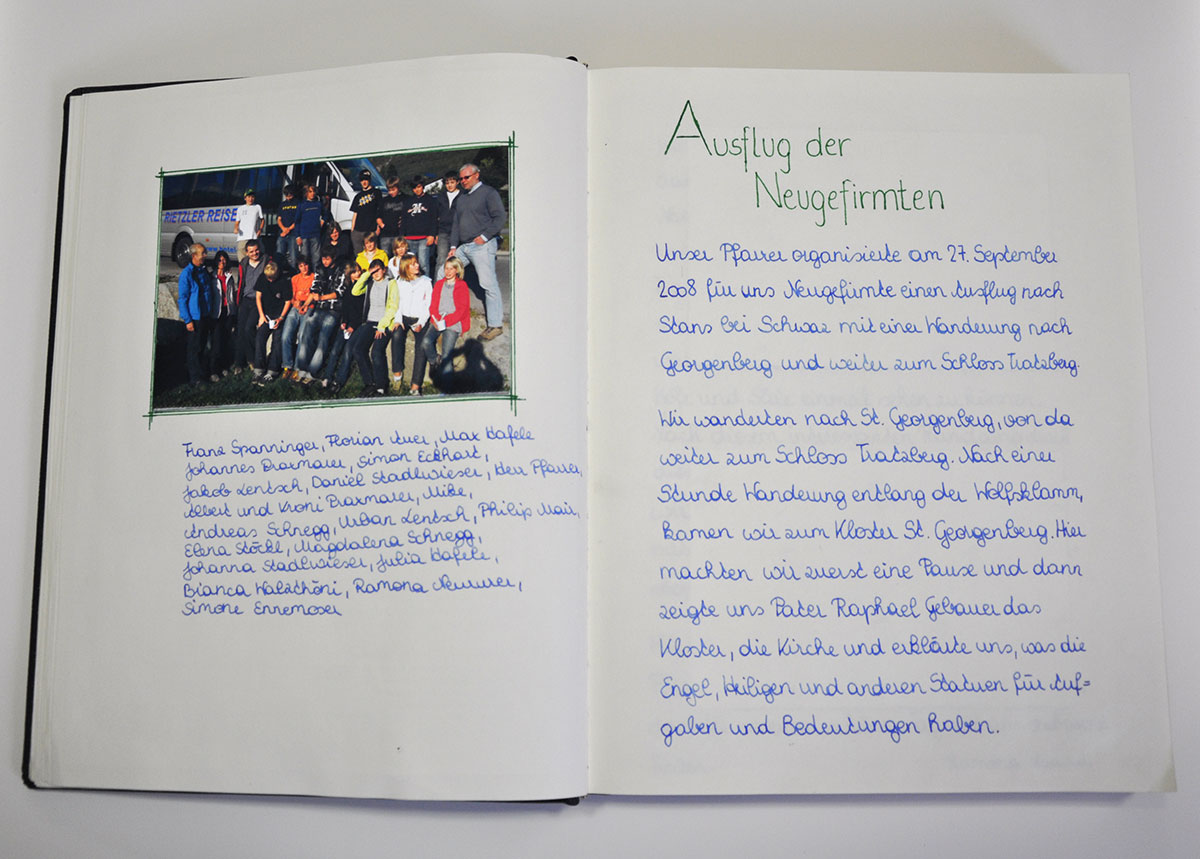 RIETZLER REISE
Franz Spanninger, Florian Auer, Max Hafele
Johannes Draxmarer, Simon Eckhart,
Jakob Lentsch, Daniel Stadlwieser, Herr Pfarrer,
Albert und Vroni Draxmarer, Mike,
Andreas Schnegg, Urban Lentsch, Philip Mair,
Elena Stöckl, Magdalena Schnegg,
Johanna Stadlwieser, Julia Hafele,
Bianca Walzthöni, Ramona
Simone Ennemoser
Ausflug der
Neugefirmten
Unser Pfarrer organisierte am 27. September
2008 für uns Neugefirmte einen Ausflug nach
Stans bei Schwaz mit einer Wanderung nach
Georgenberg und weiter zum Schloss Tratzberg.
Wir wanderten nach St. Georgenberg, von da
weiter zum Schloss Tratzberg. Nach einer
Stunde Wanderung entlang der Wolfsklamm,
kamen wir zum Kloster St. Georgenberg. Hier
machten wir zuerst eine Pause und dann
zeigte uns Pater Raphael Gebauer das
Kloster, die Kirche und erklärte uns, was die
Engel, Heiligen und anderen Statuen für Auf=
gaben und Bedeutungen haben.